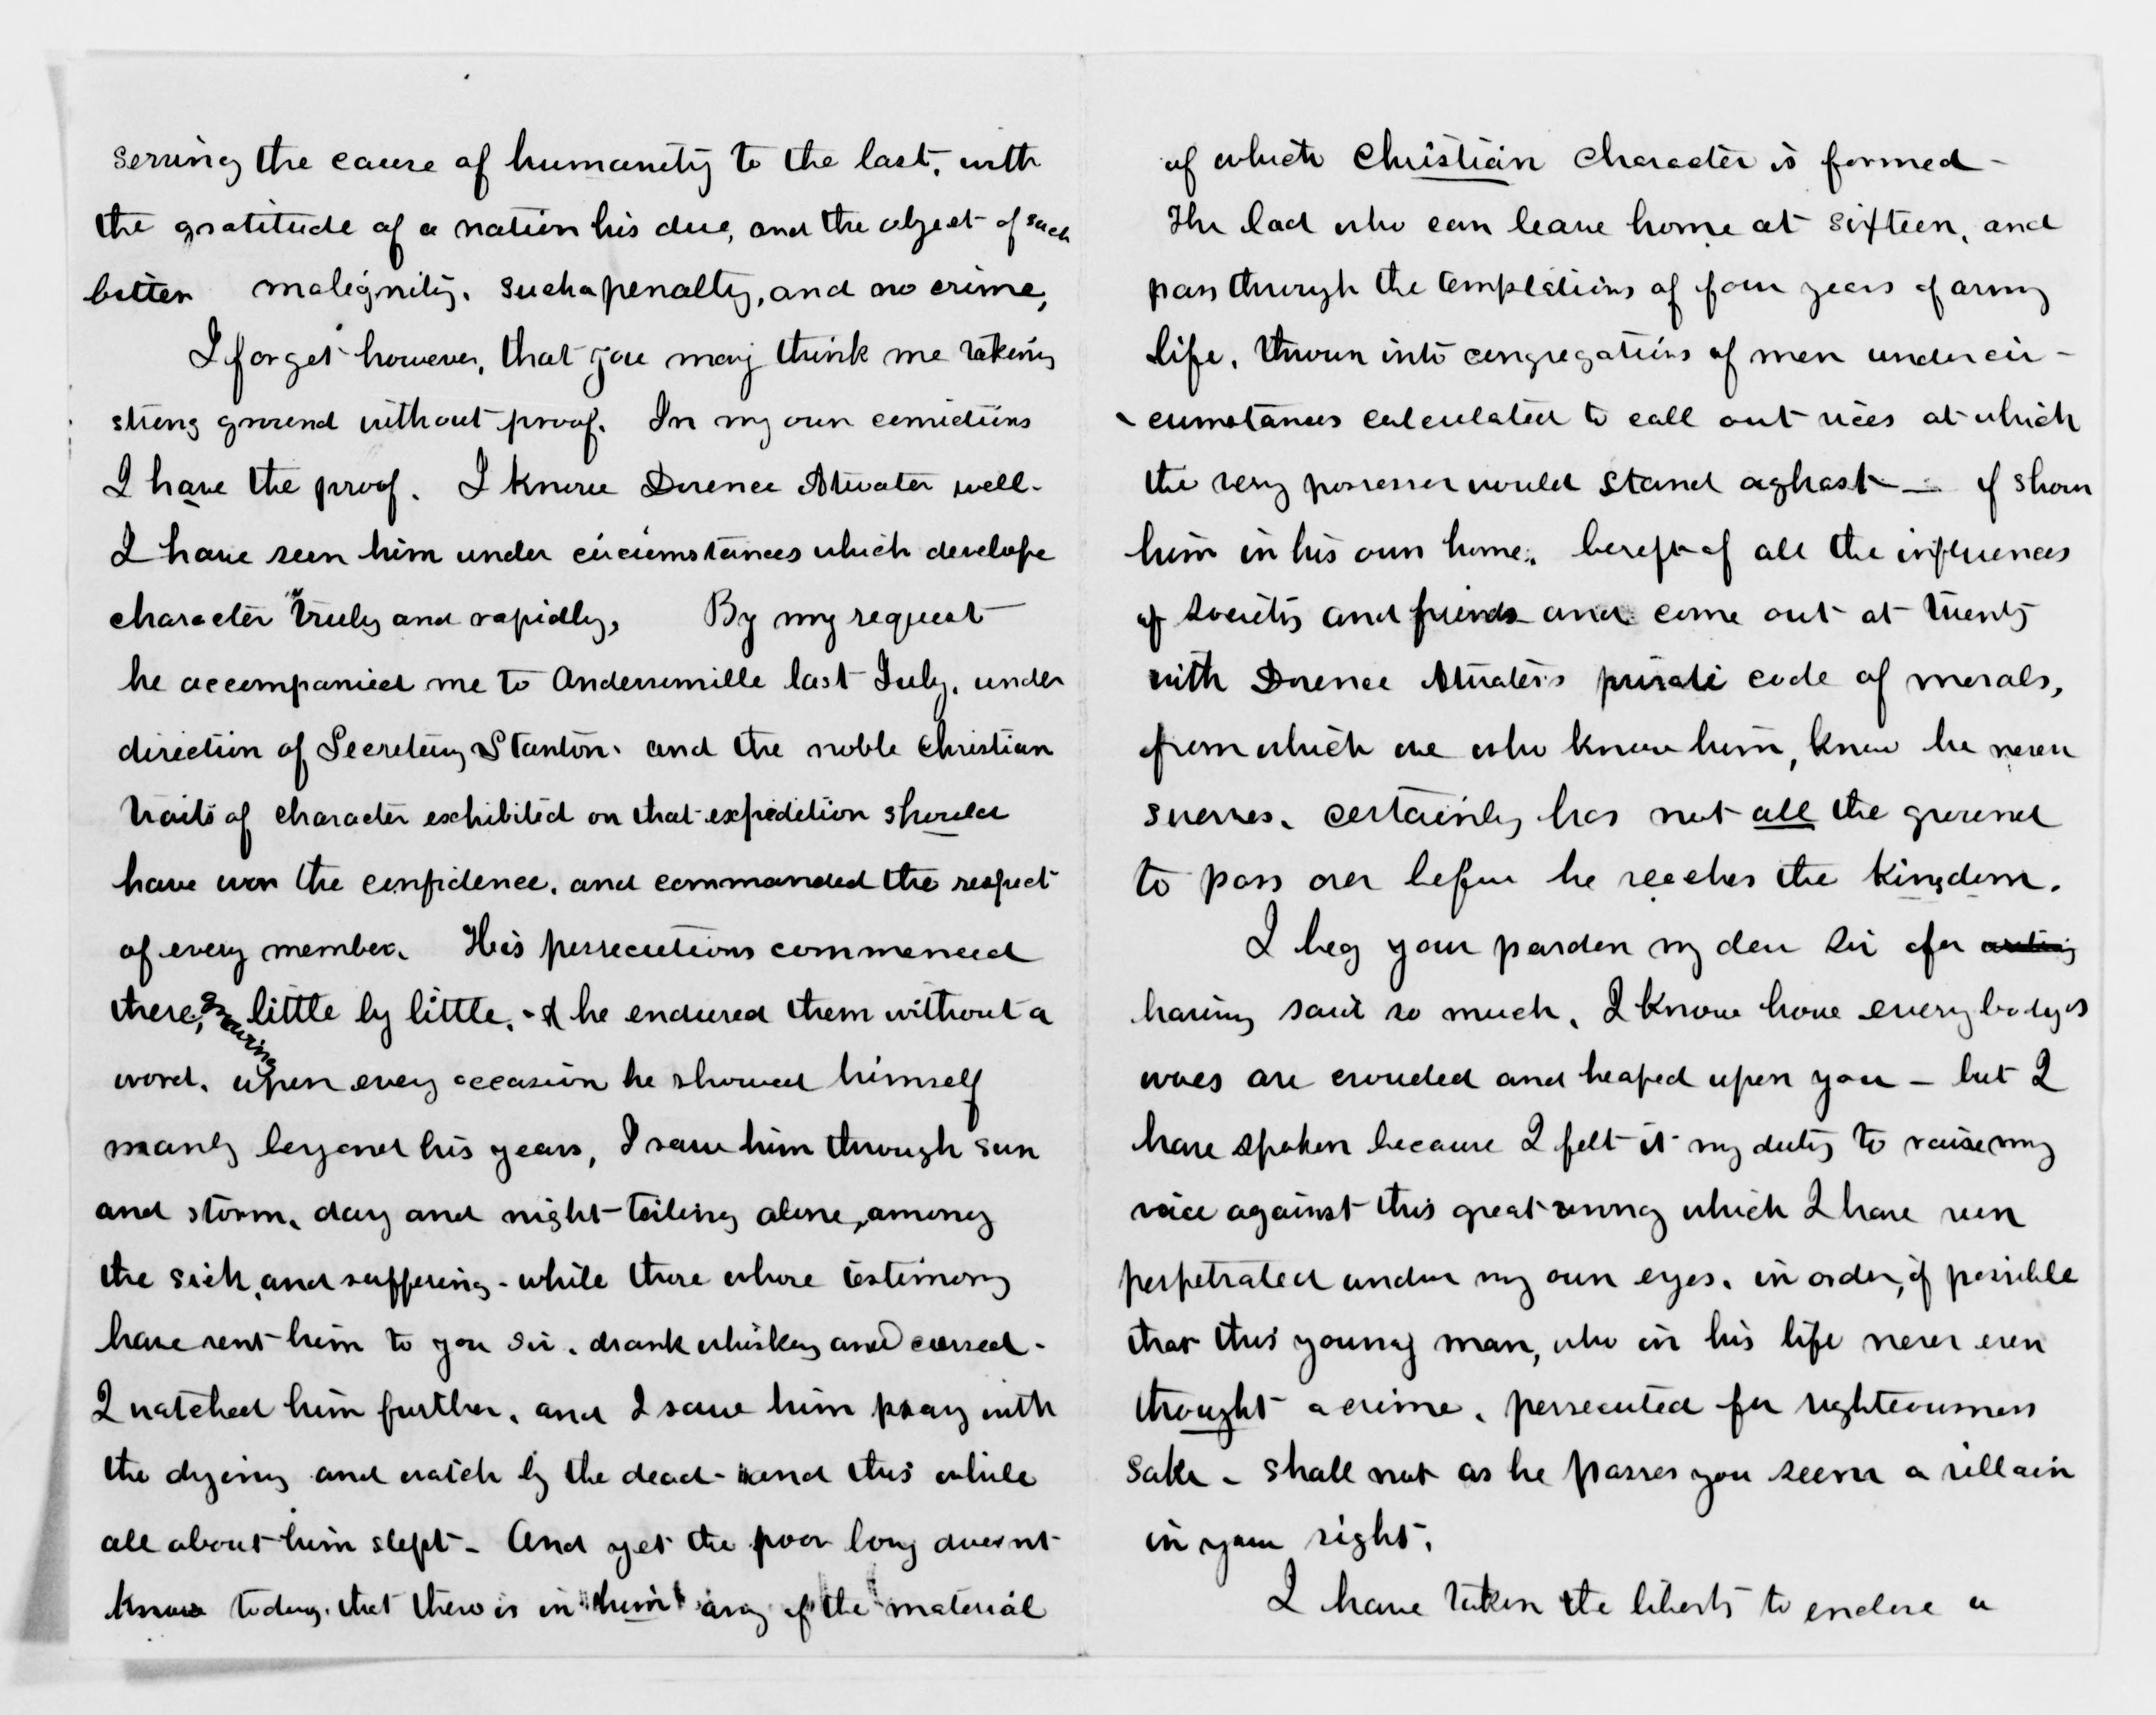 serving the cause of humanity to the last, with
the gratitude of a nation his due, and the object of such
bitter malignity. such a penalty, and no crime,
I forget however, that you may think me taking
strong ground without proof. In my own convictions
I have the proof. I know Dorence Atwater well-
I have seen him under circumstances which develope
character truly and rapidly, By my request
he accompanied me to Andersonville last July, under
direction of Secretary Stanton. and the noble Christian
traits of character exhibited on that expedition should
have won the confidence, and commanded the respect
of every member. His persecutions commenced
there, growing little by little, - & he endured them without a
word. upon every occasion he showed himself
manly beyond his years, I saw him through sun
and storm, day and night toiling alone, among
the sick, and suffering - while those whose testimony
have sent him to you Sir. drank whiskey and cursed -
I watched him further, and I saw him pray with
the dyeing and watch by the dead - and this while
all about him slept - And yet the poor boy does'nt
know today, that there is in him any of the material
of which Christian Character is formed -
The lad who can leave home at sixteen, and
pass through the temptations of four years of army
life, thrown into congregations of men under cir-
cumstances calculated to call out vices at which
the very possessor would stand aghast - if shown
him in his own home, bereft of all the influences
of society and friends and come out at twenty
with Dorence Atwater's private code of morals,
from which we who know him, know he never
swerves, certainly has not all the ground
to pass over before he reaches the Kingdom.
I beg your pardon my dear Sir for
having said so much, I know how every body's
woes are crowded and heaped upon you - but I
have spoken because I felt it my duty to raise my
voice against this great wrong which I have seen
perpetrated under my own eyes, in order, if possible
that this young man, who in his life never even
thought a crime, persecuted for righteousness
sake - shall not as he passes you seem a villain
in your sight.
I have taken the liberty to enclose a